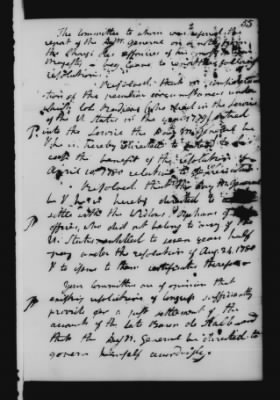 55
The Committee to whom was referred the
report of the PayM. General on a
the officers of his most
Majesty - beg leave to report the following
resolution
Resolved, that in consideration
of the peculiar circumstances under
which Col. who died in the service
of the U. States in the year 1777 entred
into the Service the Pay Mr General be
& he is hereby directed to
the benefit of the resolution of
April 10, 1780 relative to depreciation
Resolved that the Pay Mr General
be & he is hereby directed to
settle with the Widows & Orphans of
offices, who did not belong to any of the
U. States entitled to seven years half
pay under the resolution of Aug. 24, 1780
& to issue to them certificates therefor
Your Committee are of opinion that
existing resolutions of Congress sufficiently
provide for a just settlement of the
accounts of the late Baron de Kalb and
that the PayM. General be directed to
govern himself accordingly.